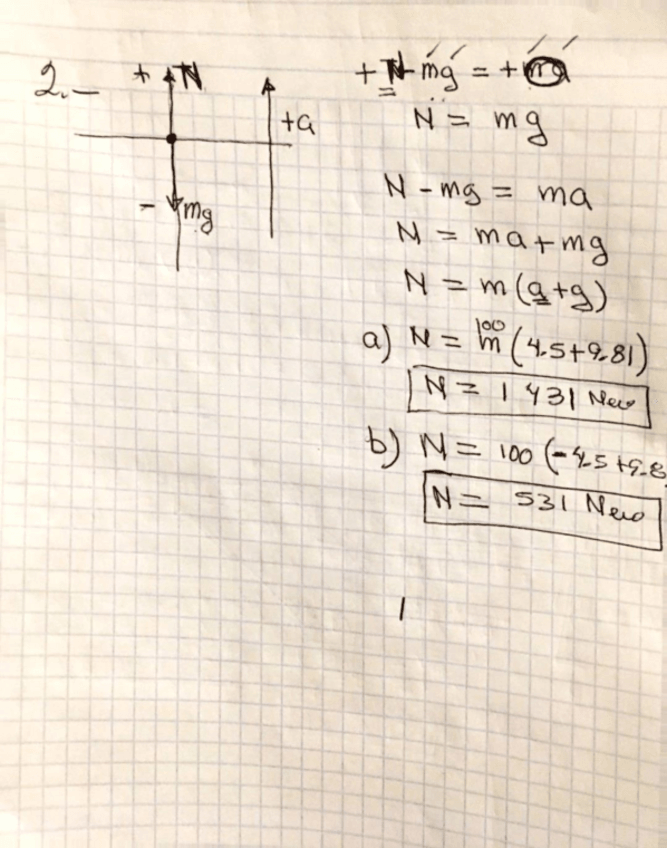 2.-
+ N
+a
- mg
+N-mg = +ma
N = mg
N - mg = ma
N = ma+mg
N = m(a+g)
100
a) N = m (4.5+9.81)
N = 1 431 New
b) N = 100 (-4.5+9.8
N = 531 New